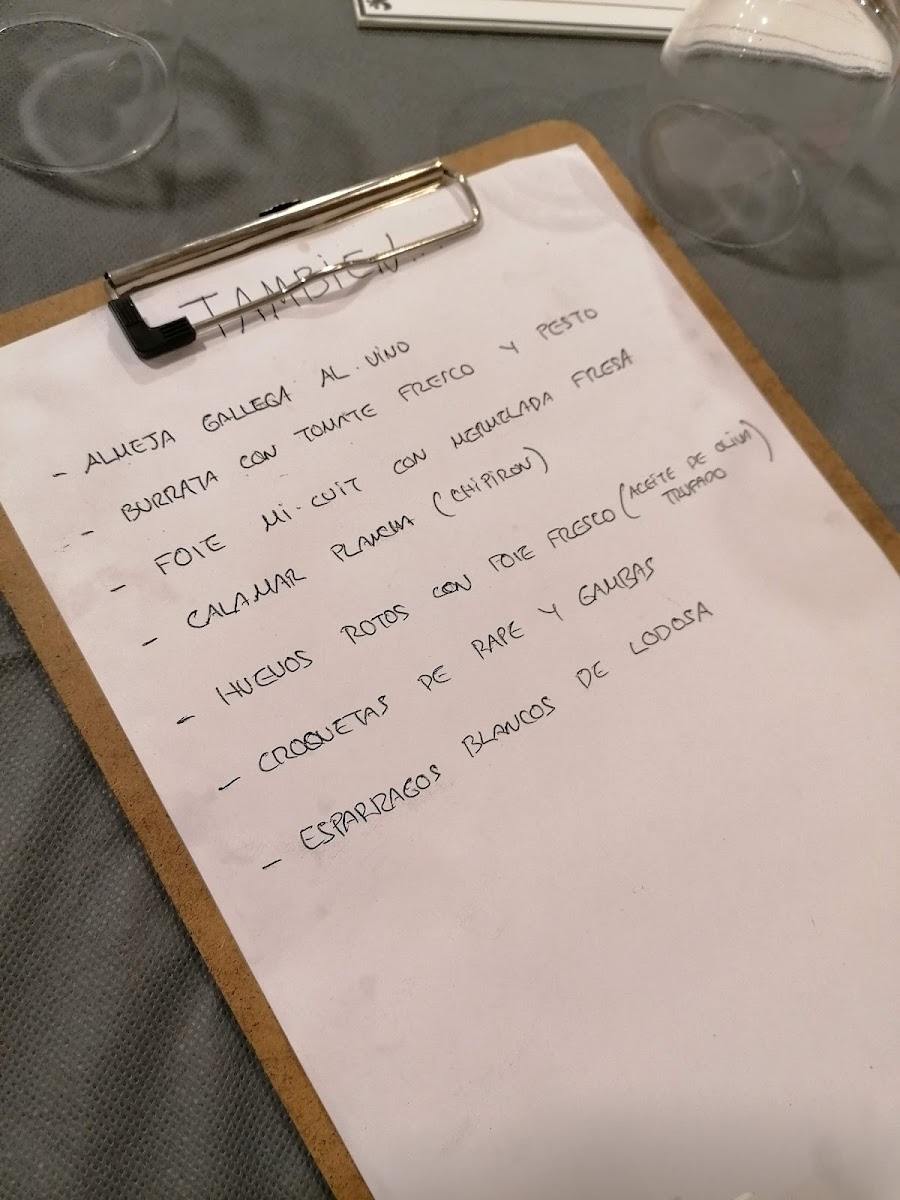 TAMBIEN..
- ALMEJA GALLEGA AL VINO
- BURRATA CON TOMATE FRESCO Y PESTO
- FOIE MI-CUIT CON MERMELADA FRESA
- CALAMAR PLANCHA (CHIPIRON)
- HUEVOS ROTOS CON FOIE FRESCO (ACEITE DE OLIVA)
TRUFADO
- CROQUETAS DE RAPE Y GAMBAS
- ESPARRAGOS BLANCOS DE LODOSA